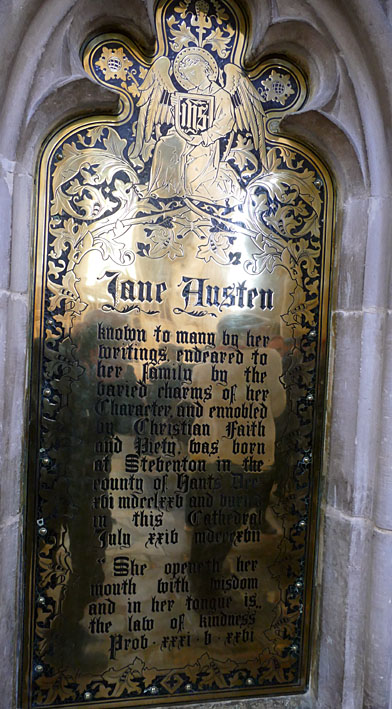 IHS
Jane Austen
known to many by her
writings, endeared to
her family by the
varied charms of her
Character, and ennobled
by Christian Faith
and Piety, was born
at Steventon in the
county of Hants Dec.
xvi mdcclxxv and buried
in this Cathedral
July xxiv mdcccxvii
"She openeth her
mouth with wisdom
and in her tongue is
the law of kindness
Prov · xxxi · v · xxvi